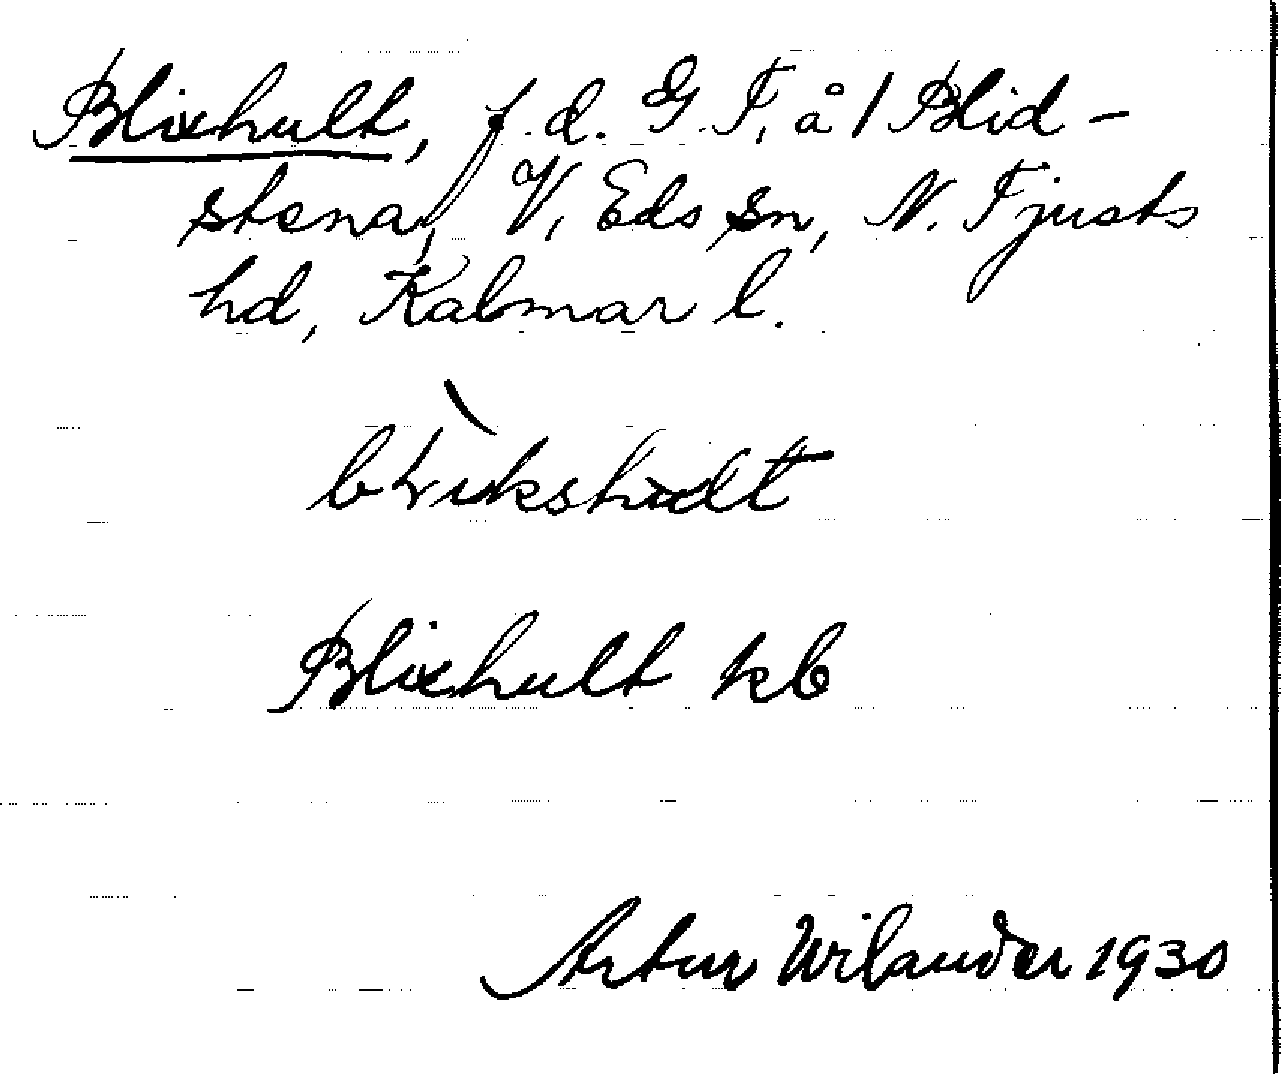 Blixhult, f.d. G. T. å / Blid-
stena, V. Eds sn, N. Tjusts
hd, Kalmar l.
Blixhult kb
Artur Wilander 1930